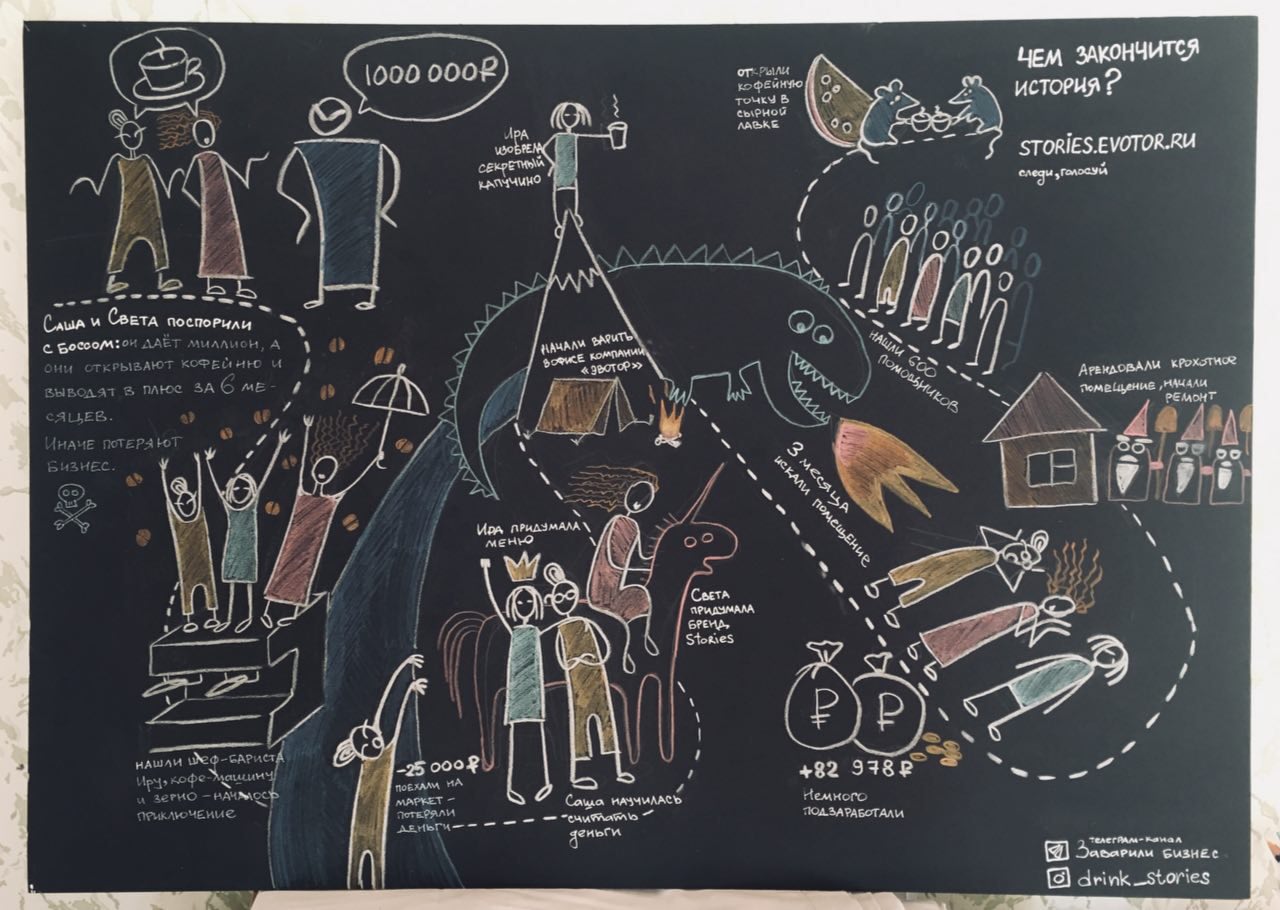 1000 000₽
Саша и Света поспорили
с Боссом: он даёт миллион, а
они открывают кофейню и
выводят в плюс за 6 ме-
сяцев.
Иначе потеряют
бизнес.
нашли шеф-бариста
Иру, кофе-машину
и зерно – началось
приключение
-25 000₽
поехали на
маркет –
потеряли
деньги
Саша научилась
считать
деньги
Ира придумала
меню
Света
придумала
бренд
Stories
начали варить
в офисе компании
«Эвотор»
Ира
изобрела
секретный
капучино
3 месяца
искали помещение
+82 978₽
Немного
подзаработали
₽
₽
Арендовали крохотное
помещение, начали
ремонт
нашли 600
помощников
открыли
кофейную
точку в
сырной
лавке
Чем закончится
история?
STORIES.EVOTOR.RU
следи, голосуй
телеграм-канал
Заварили бизнес
drink_stories